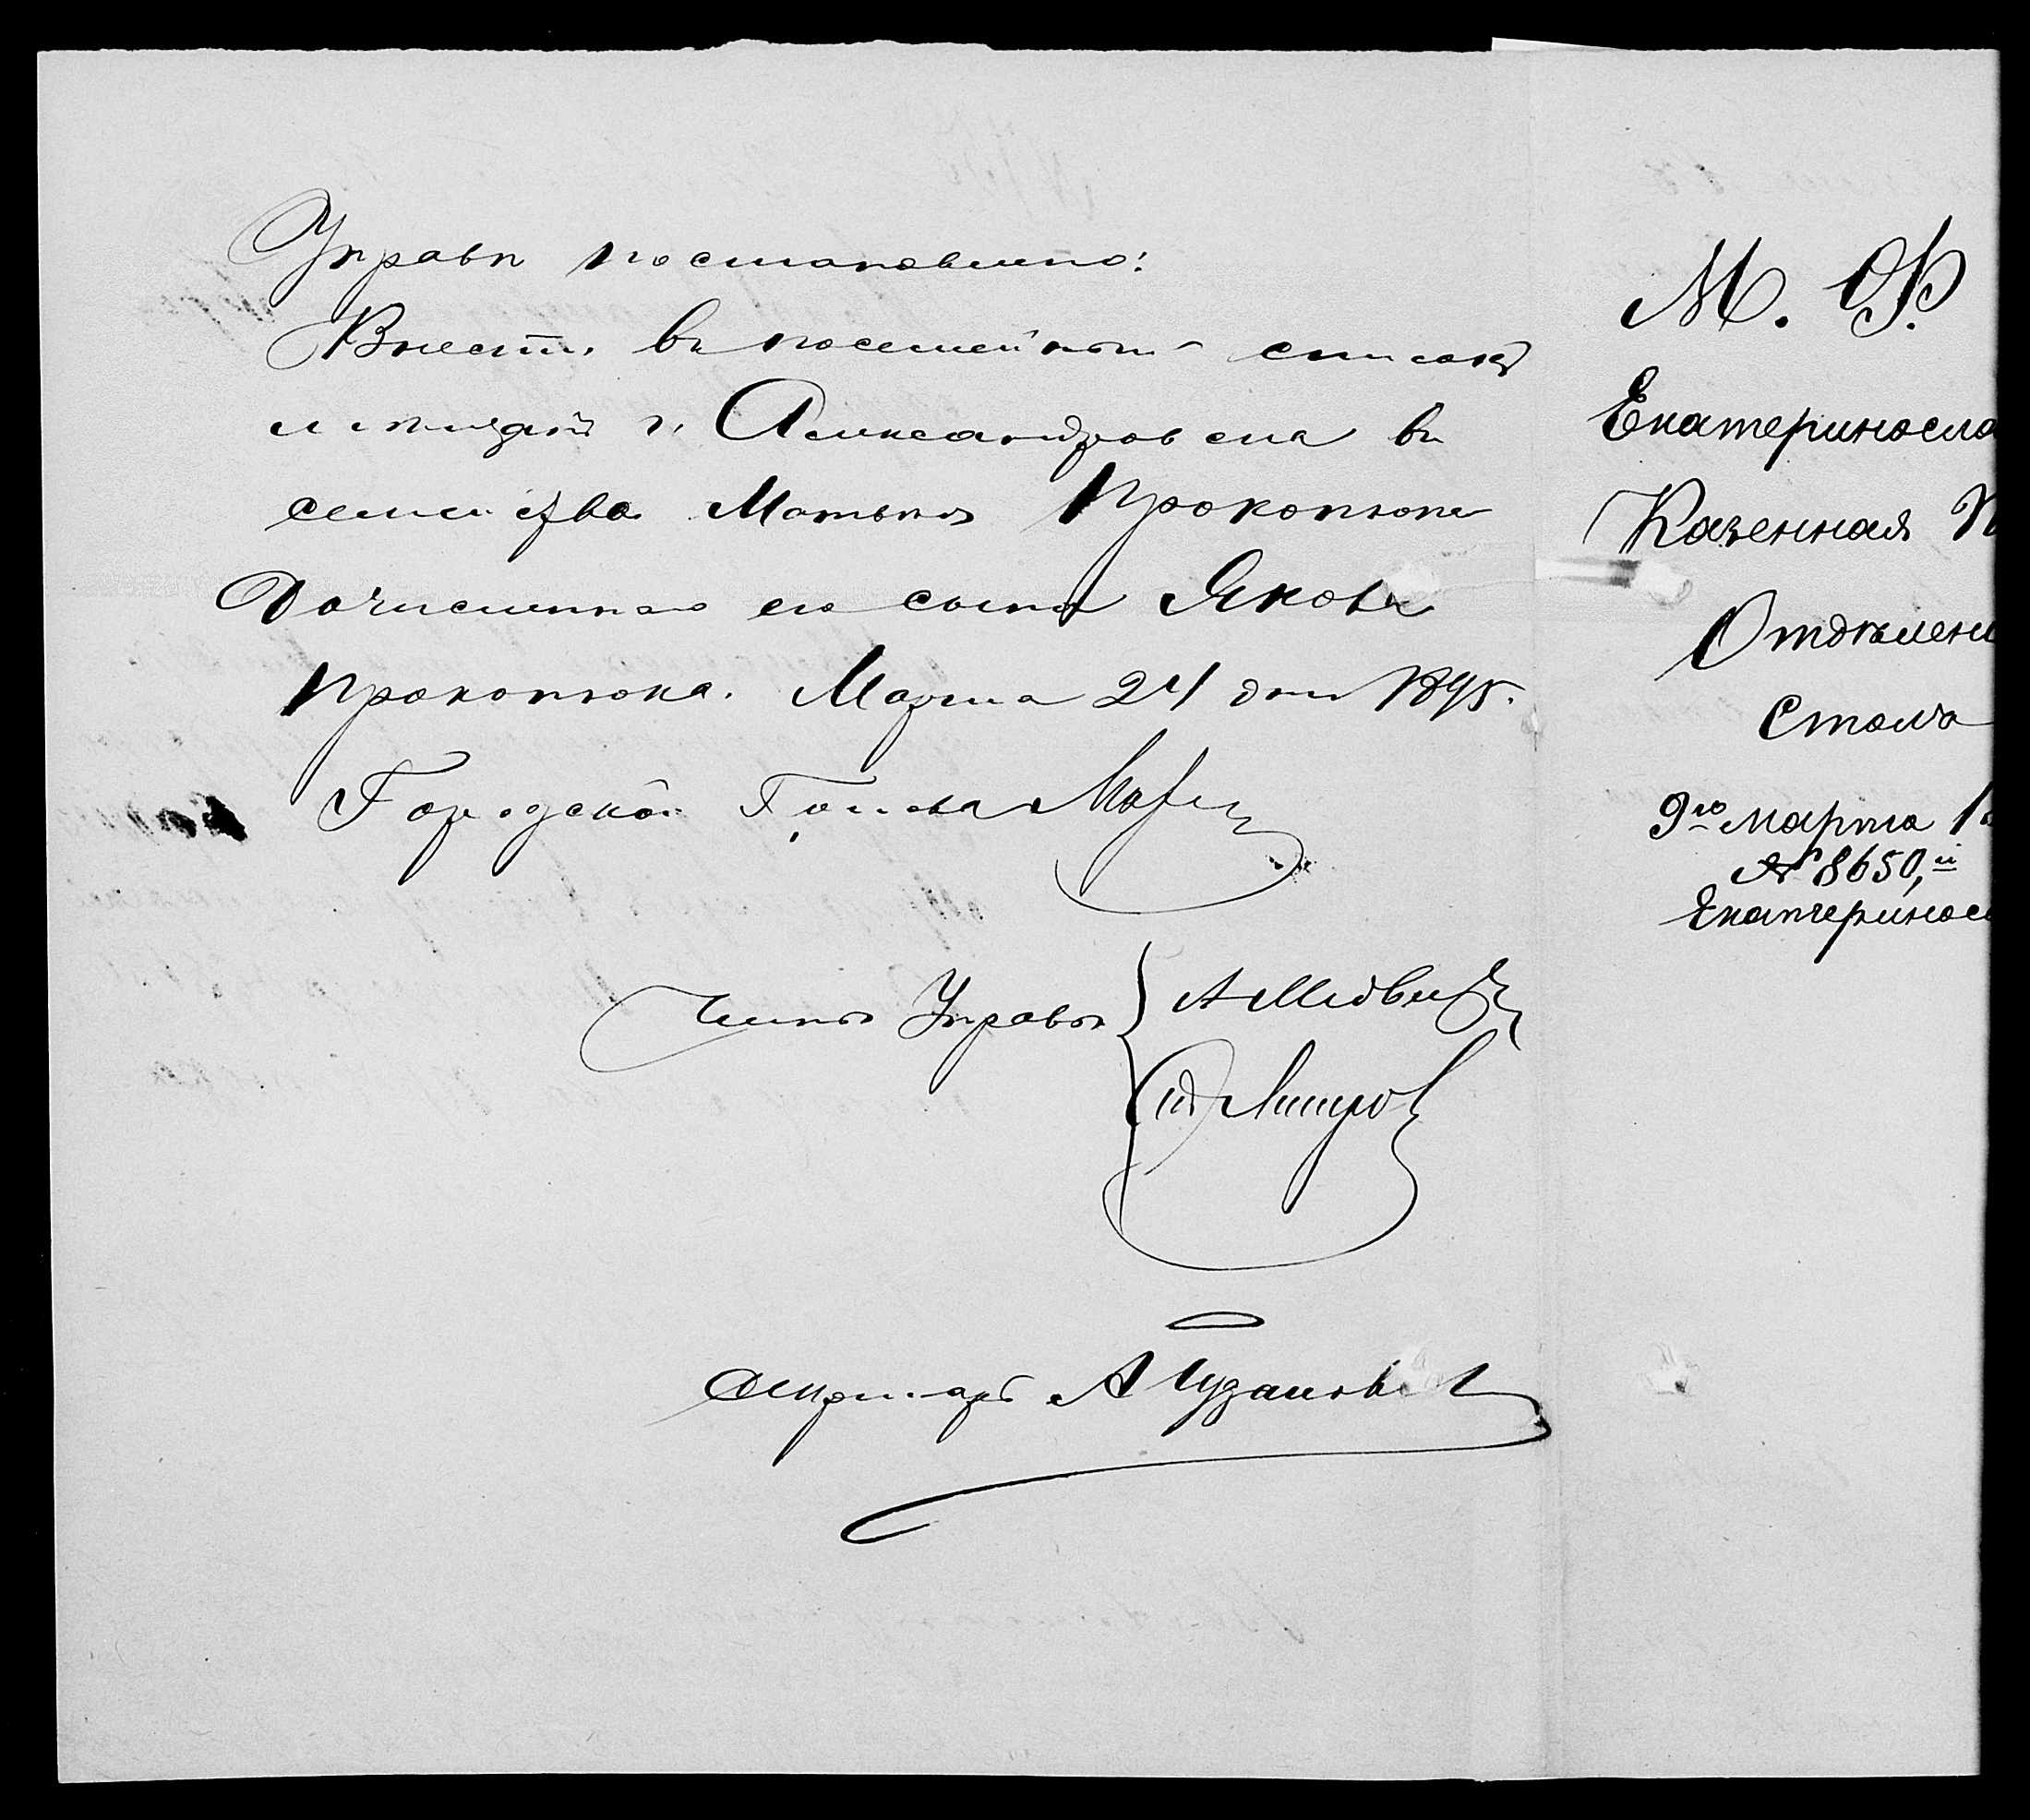 Управы постановлено:
Внести въ посемейный списокъ
мѣщанъ г. Александровска въ
семейство Матвѣя Прокопюка
дочисленнаго его сына Якова
Прокопюка. Марта 24 дня 1895.
Городской Голова
Члены Управы
Секретарь А
М. Ф.
Екатериносла
Казенная П
Отдѣлени
Стола
9го марта 1
№ 8650,
Екатеринос